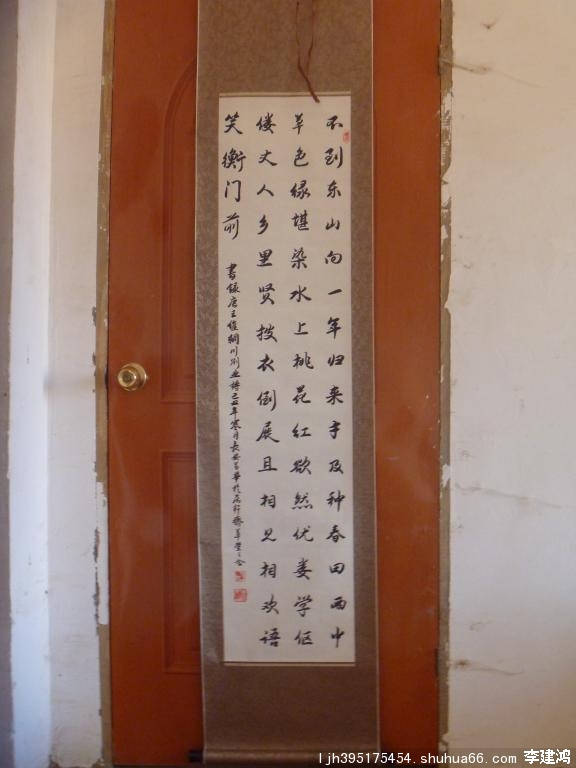 不到东山向一年归来才及种春田雨中
草色绿堪染水上桃花红欲然优娄学伛
偻丈人乡里贤披衣倒屣且相见相欢语
笑衡门前
書録唐王维辋川别业诗己丑年寒月长安
ljh395175454.shuhua66.com 李建鸿